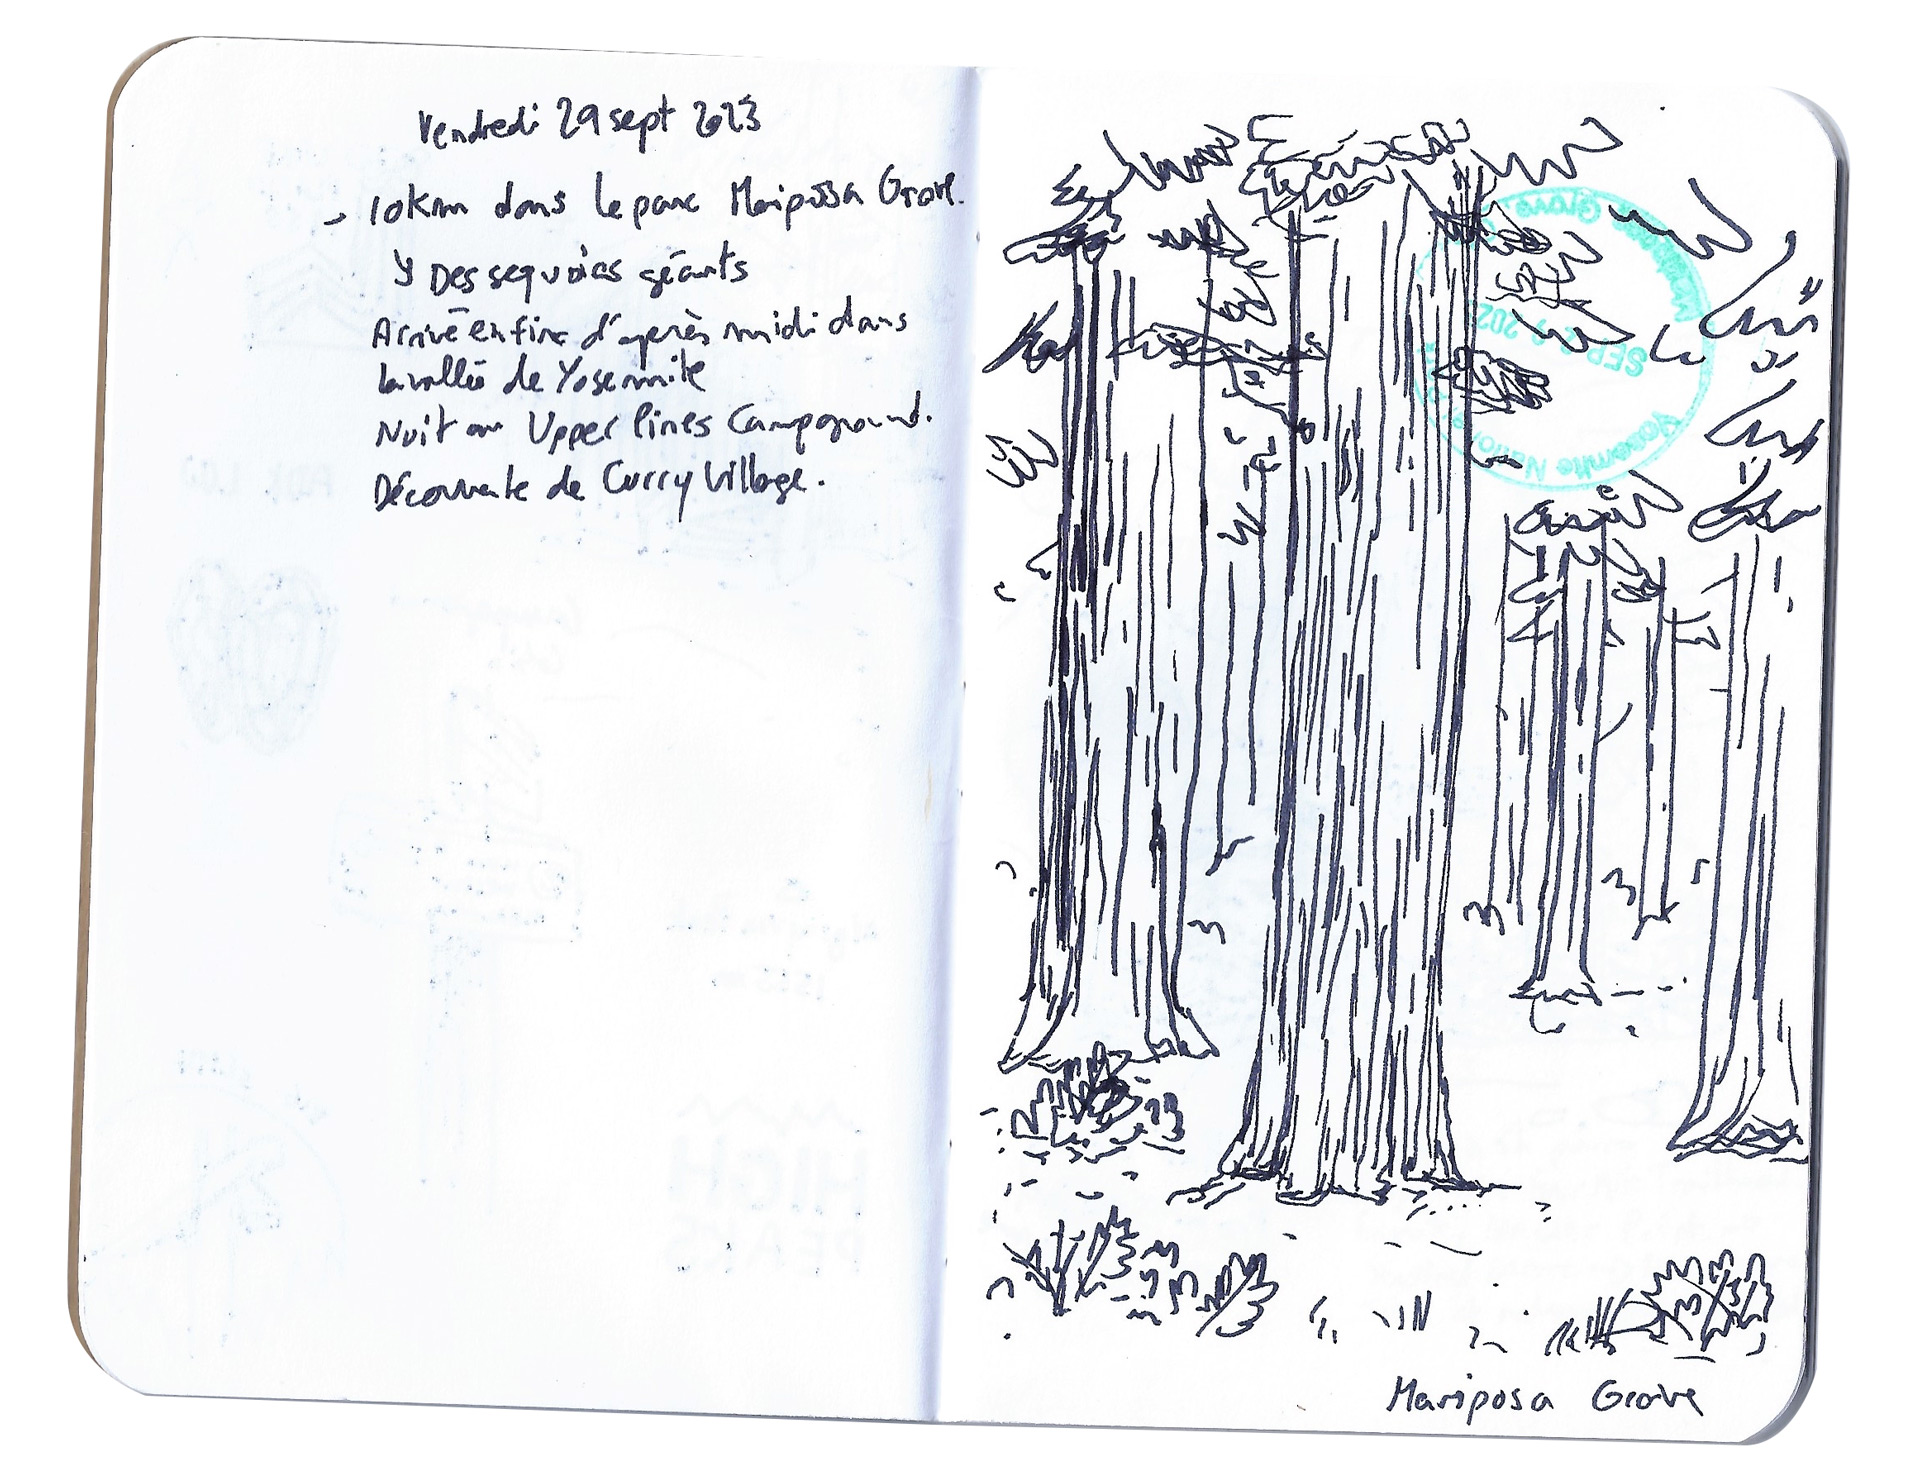 Vendredi 29 sept 2023
- 10km dans le parc Mariposa Grove.
↳ Des sequoias géants
Arrivé en fin d'après midi dans
la vallée de Yosemite
Nuit au Upper Pines Campground.
Découverte de Curry Village.
Mariposa Grove
SEP 2 9 202
Yosemite Nation
Mariposa Grove
HIGH
PEAKS